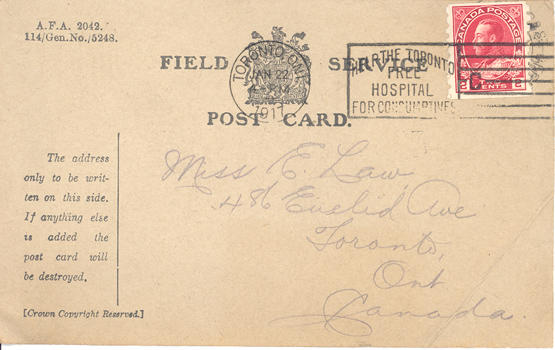 A.F.A. 2042.
114/Gen.No./5248.
CANADA POSTAGE
2 CENTS 2
FIELD SERVICE
TORONTO, ONT.
JAN 22
1917
THE TORONTO
FREE
HOSPITAL
FOR CONSUMPTIVES
POST CARD.
The address
only to be writ-
ten on this side.
If anything else
is added the
post card will
be destroyed.
[Crown Copyright Reserved.]
Miss E. Law,
486 Euclid Ave
Toronto,
Ont
Canada.